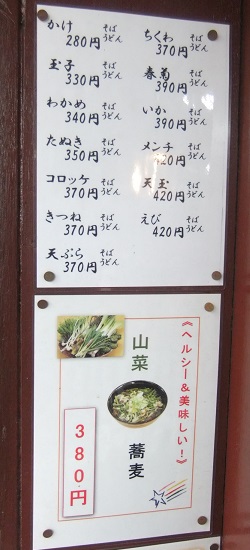 かけ そば うどん 280円
玉子 そば うどん 330円
わかめ そば うどん 340円
たぬき そば うどん 350円
コロッケ そば うどん 370円
きつね そば うどん 370円
天ぷら そば うどん 370円
ちくわ そば うどん 370円
春菊 そば うどん 390円
いか そば うどん 390円
メンチ そば うどん 420円
天玉 そば うどん 420円
えび そば うどん 420円
《ヘルシー&美味しい!》
山菜
蕎麦
380円